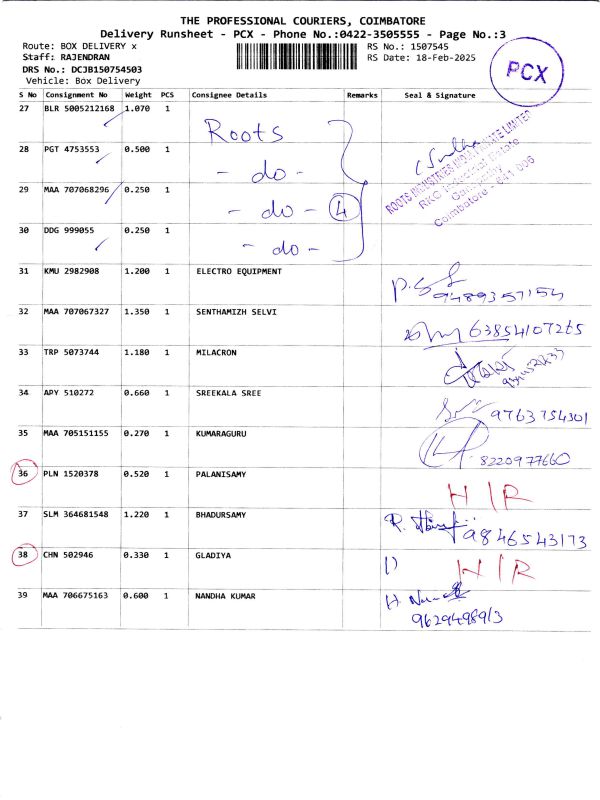 THE PROFESSIONAL COURIERS, COIMBATORE
Delivery Runsheet - PCX - Phone No.:0422-3505555 - Page No.:3
Route: BOX DELIVERY x
RS No.: 1507545
Staff: RAJENDRAN
RS Date: 18-Feb-2025
DRS No.: DCJB150754503
Vehicle: Box Delivery
PCX
S No Consignment No Weight PCS Consignee Details Remarks Seal & Signature
27 BLR 5005212168 1.070 1 Roots
ROOTS INDUSTRIES INDIA PRIVATE LIMITED
RKG Industrial Estate
Ganapathy
Coimbatore - 641 006
28 PGT 4753553 0.500 1 - do -
29 MAA 707068296 0.250 1 - do - 4
30 DDG 999055 0.250 1 - do -
31 KMU 2982908 1.200 1 ELECTRO EQUIPMENT 9489357154
32 MAA 707067327 1.350 1 SENTHAMIZH SELVI 63854107265
33 TRP 5073744 1.180 1 MILACRON
34 APY 510272 0.660 1 SREEKALA SREE 9763754301
35 MAA 705151155 0.270 1 KUMARAGURU 8220977660
36 PLN 1520378 0.520 1 PALANISAMY H/R
37 SLM 364681548 1.220 1 BHADURSAMY 9846543173
38 CHN 502946 0.330 1 GLADIYA H/R
39 MAA 706675163 0.600 1 NANDHA KUMAR
9629498913